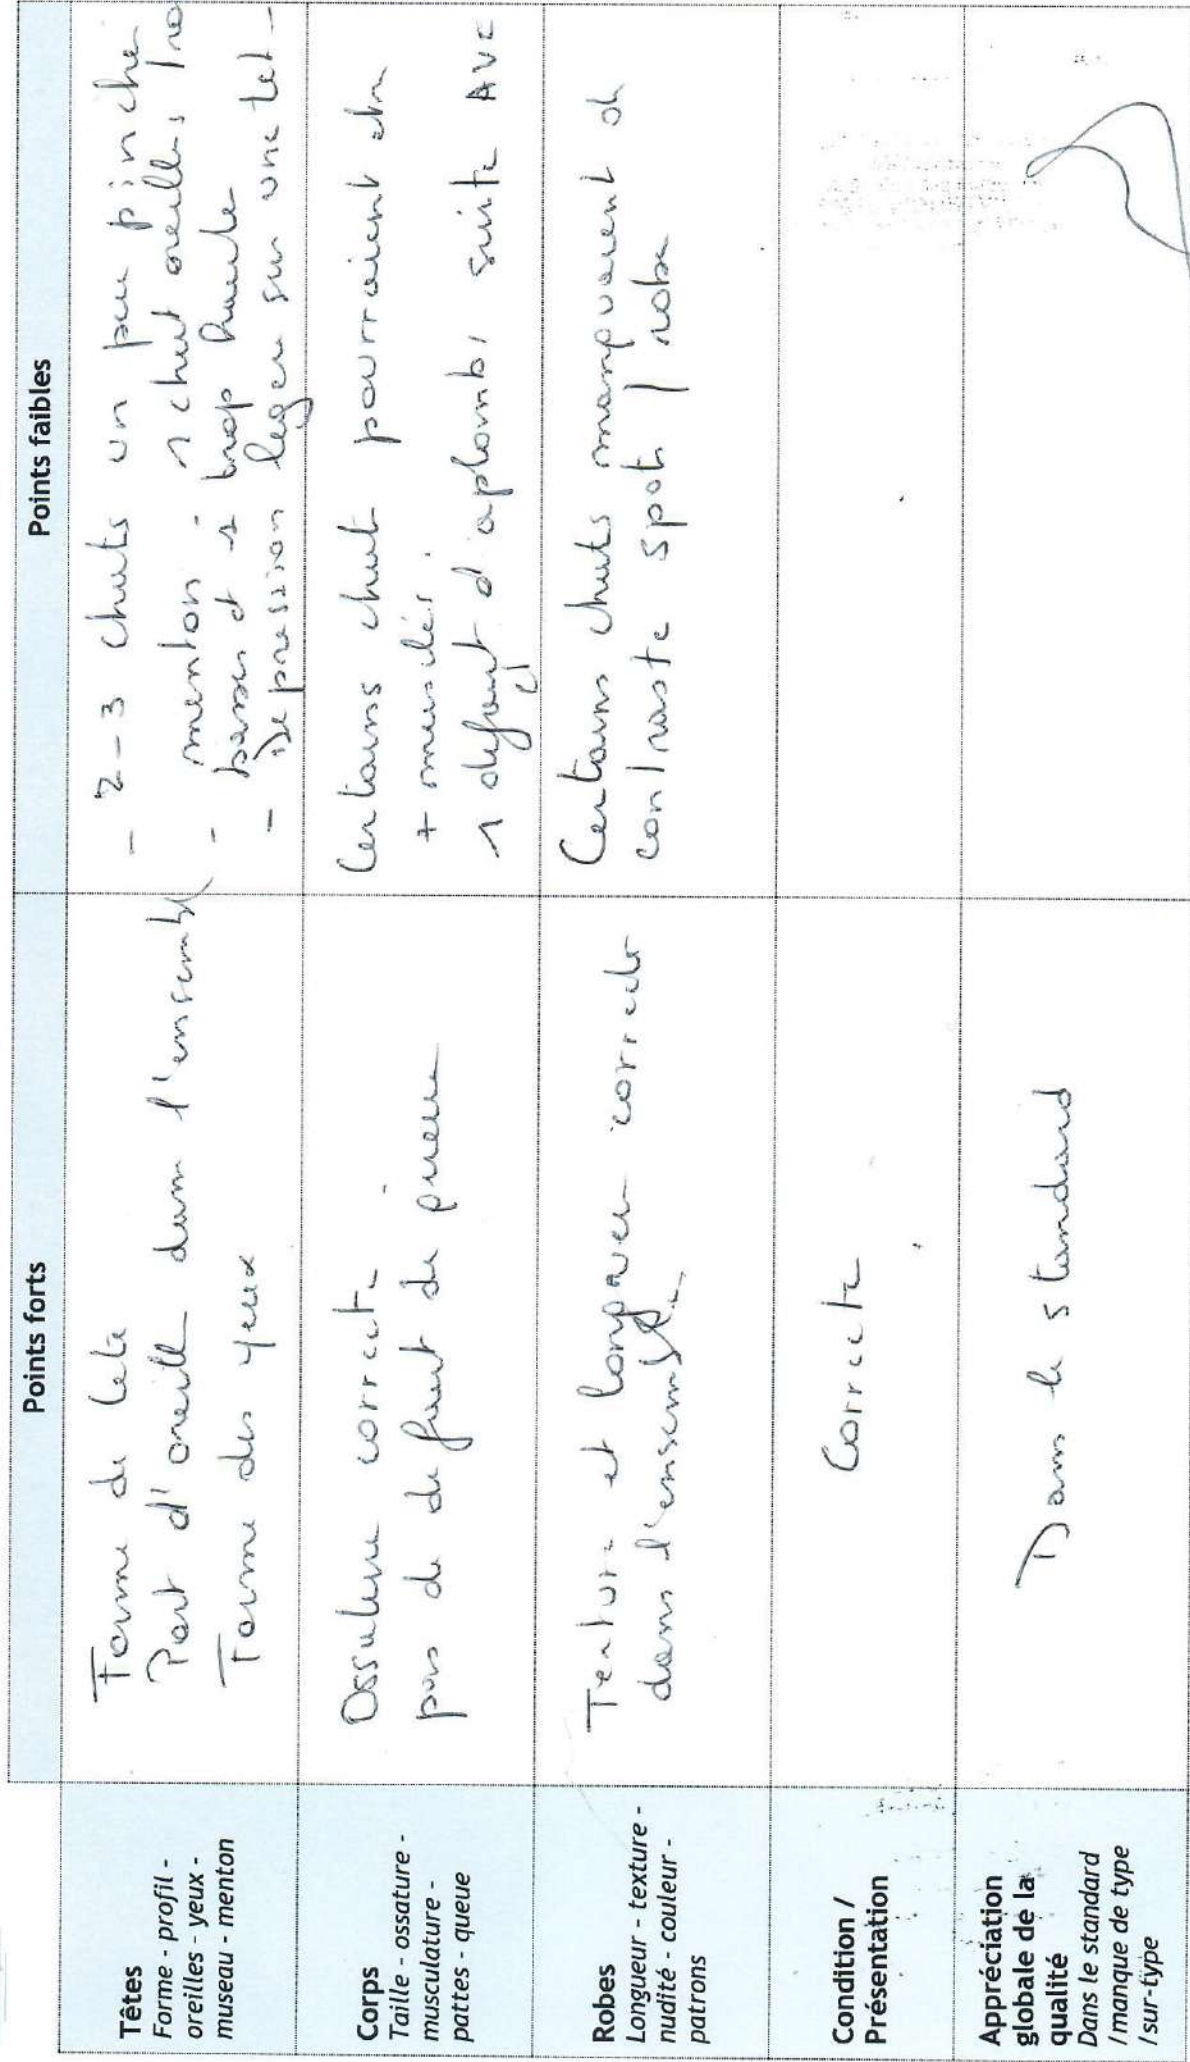 Points forts
Points faibles
Têtes
Forme - profil -
oreilles - yeux -
museau - menton
Forme de tete
Port d'oreille dans l'ensemble
Forme des yeux
- 2-3 chats un peu pinché
- menton - 1 chat oreilles
basses et 1 trop haute
- Depression leger sur une tet -
Corps
Taille - ossature -
musculature -
pattes - queue
Ossature correcte
pas de defaut de queue
Certains chat pourraient etre
+ musclés.
1 defaut d'aplomb, suite AVC
Robes
Longueur - texture -
nudité - couleur -
patrons
Texture et longueur correcte
dans l'ensemble.
Certains chats manquaient de
contraste spot / robe
Condition /
Présentation
Correcte
Appréciation
globale de la
qualité
Dans le standard
/ manque de type
/ sur-type
Dans le standard